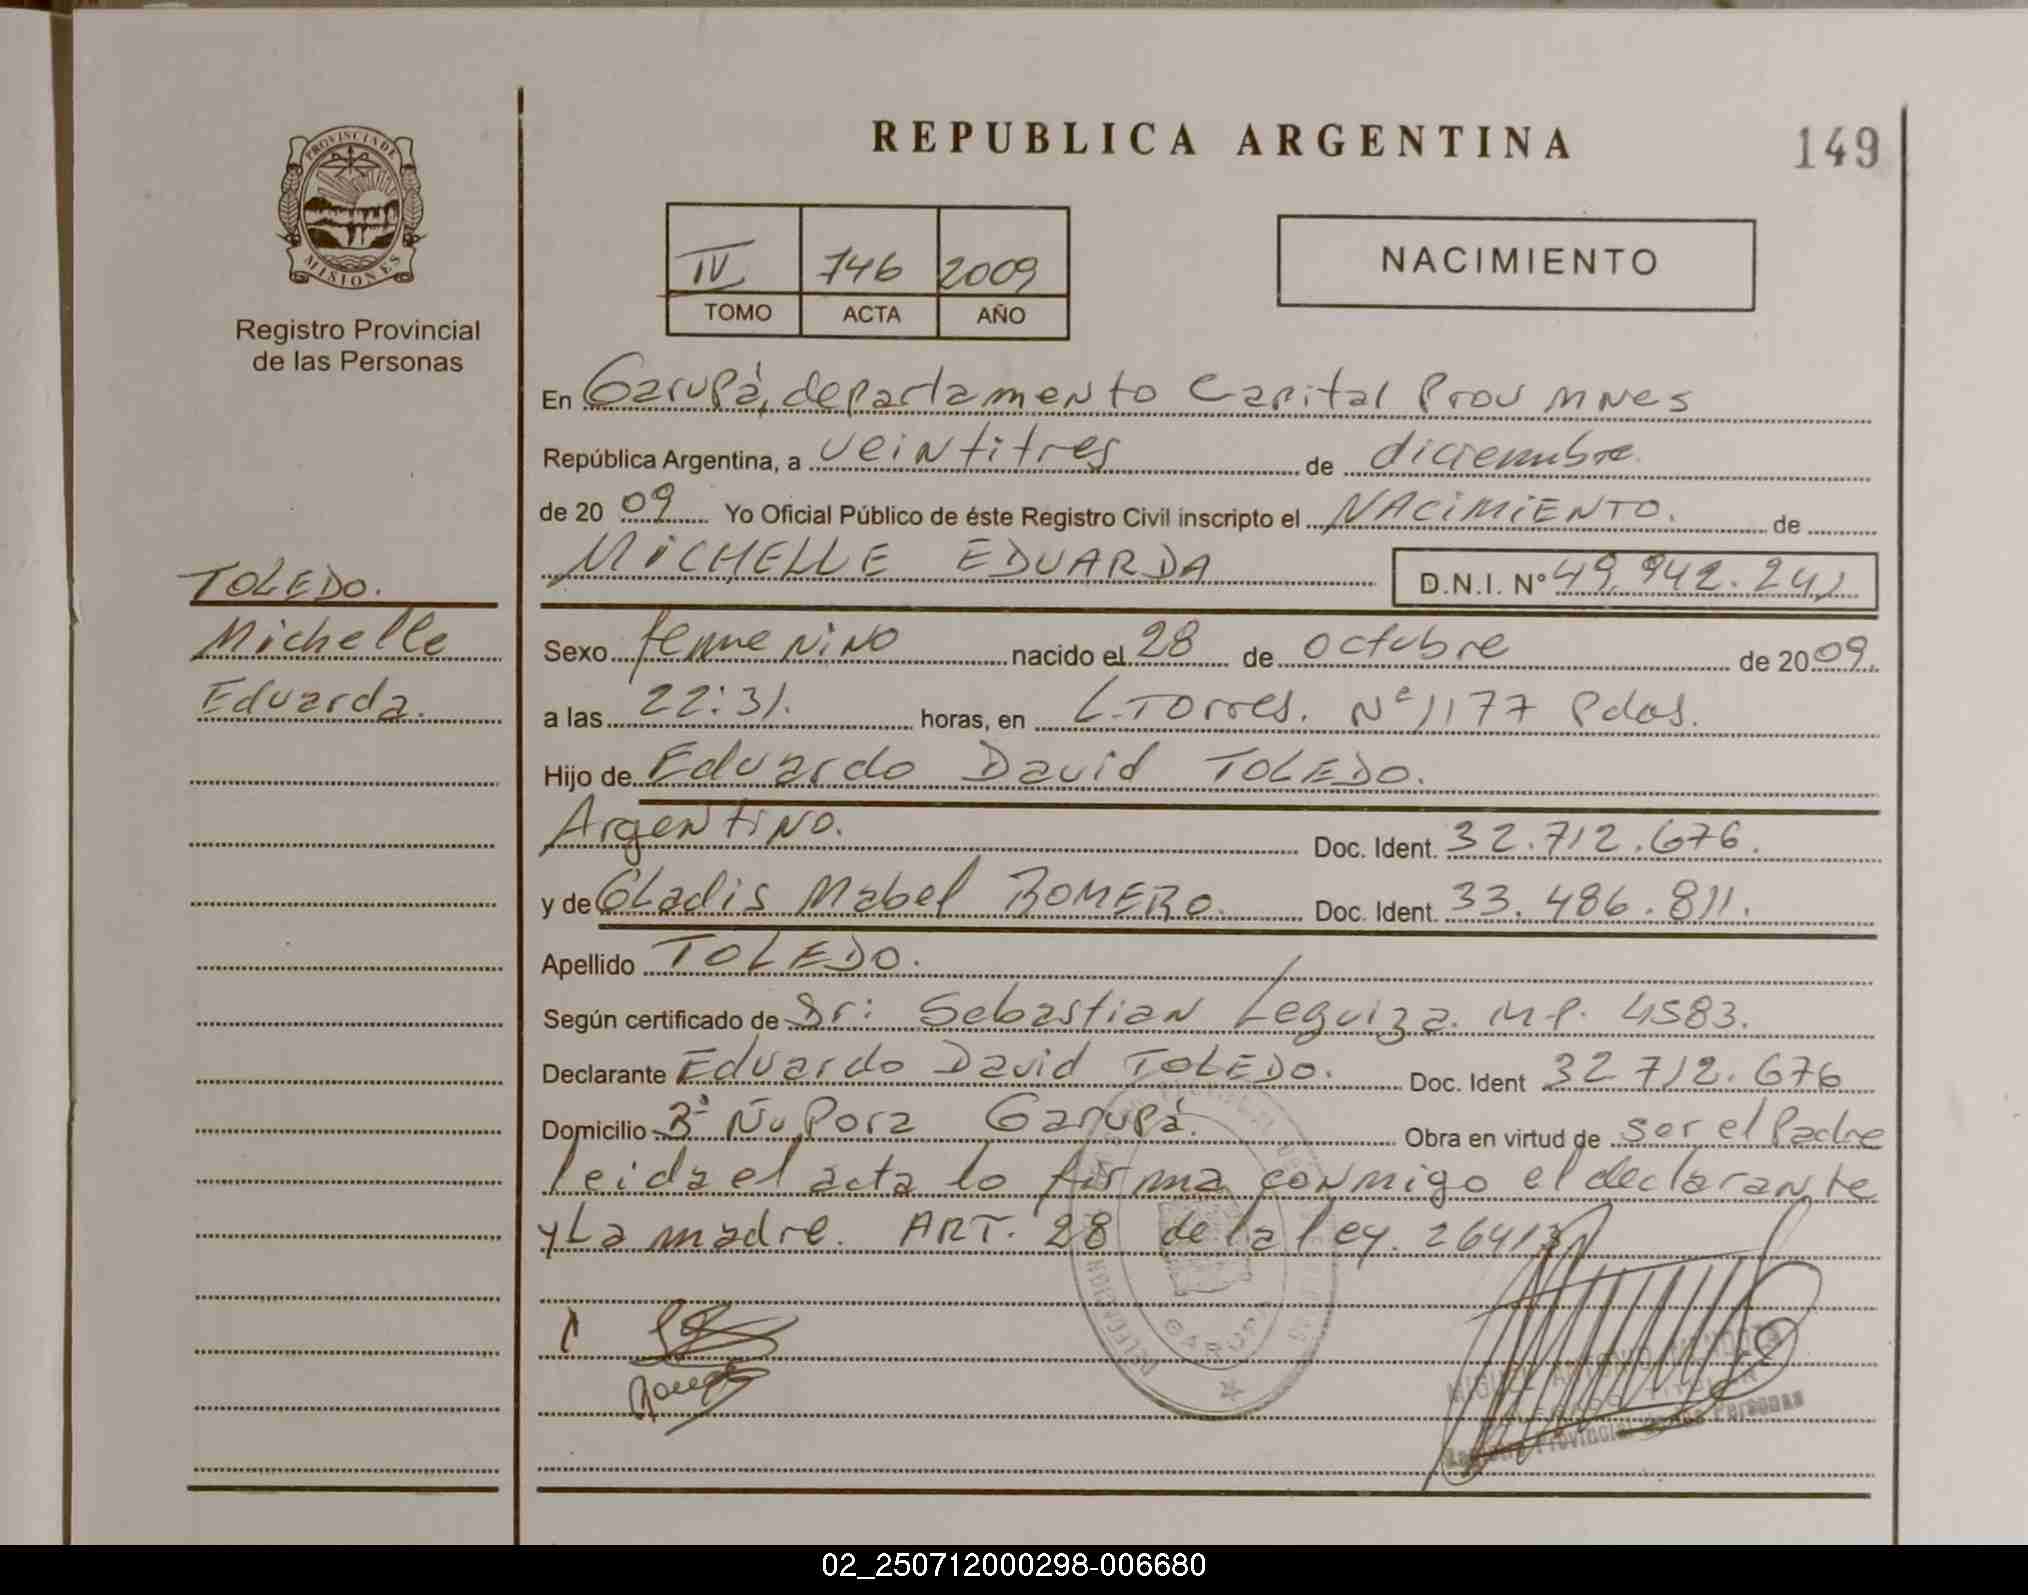 REPUBLICA ARGENTINA
149
PROVINCIA DE
MISIONES
Registro Provincial
de las Personas
IV 746 2009
TOMO ACTA AÑO
NACIMIENTO
En Garupá, departamento Capital Prov Mnes
República Argentina, a veintitres de diciembre
de 20 09 Yo Oficial Público de éste Registro Civil inscripto el NACIMIENTO. de
MICHELLE EDUARDA D.N.I. N° 49.942.242
TOLEDO.
Michelle
Eduarda.
Sexo femenino nacido el 28 de octubre de 2009.
a las 22:31. horas, en L. Torres. N° 1177 Pdas.
Hijo de Eduardo David TOLEDO.
Argentino. Doc. Ident. 32.712.676.
y de Gladis Mabel ROMERO. Doc. Ident. 33.486.811.
Apellido TOLEDO.
Según certificado de Dr: Sebastian Leguiza. M.P. 4583.
Declarante Eduardo David TOLEDO. Doc. Ident 32 712.676
Domicilio B° Ñu Pora Garupá. Obra en virtud de ser el Padre
leida el acta lo firma conmigo el declarante
y La madre. ART. 28 de la ley. 26413
DELEGACION
GARUPA
MIGUEL ANTONIO MENDOZA
DELEGADO TITULAR
Registro Provincial de las Personas
02_250712000298-006680